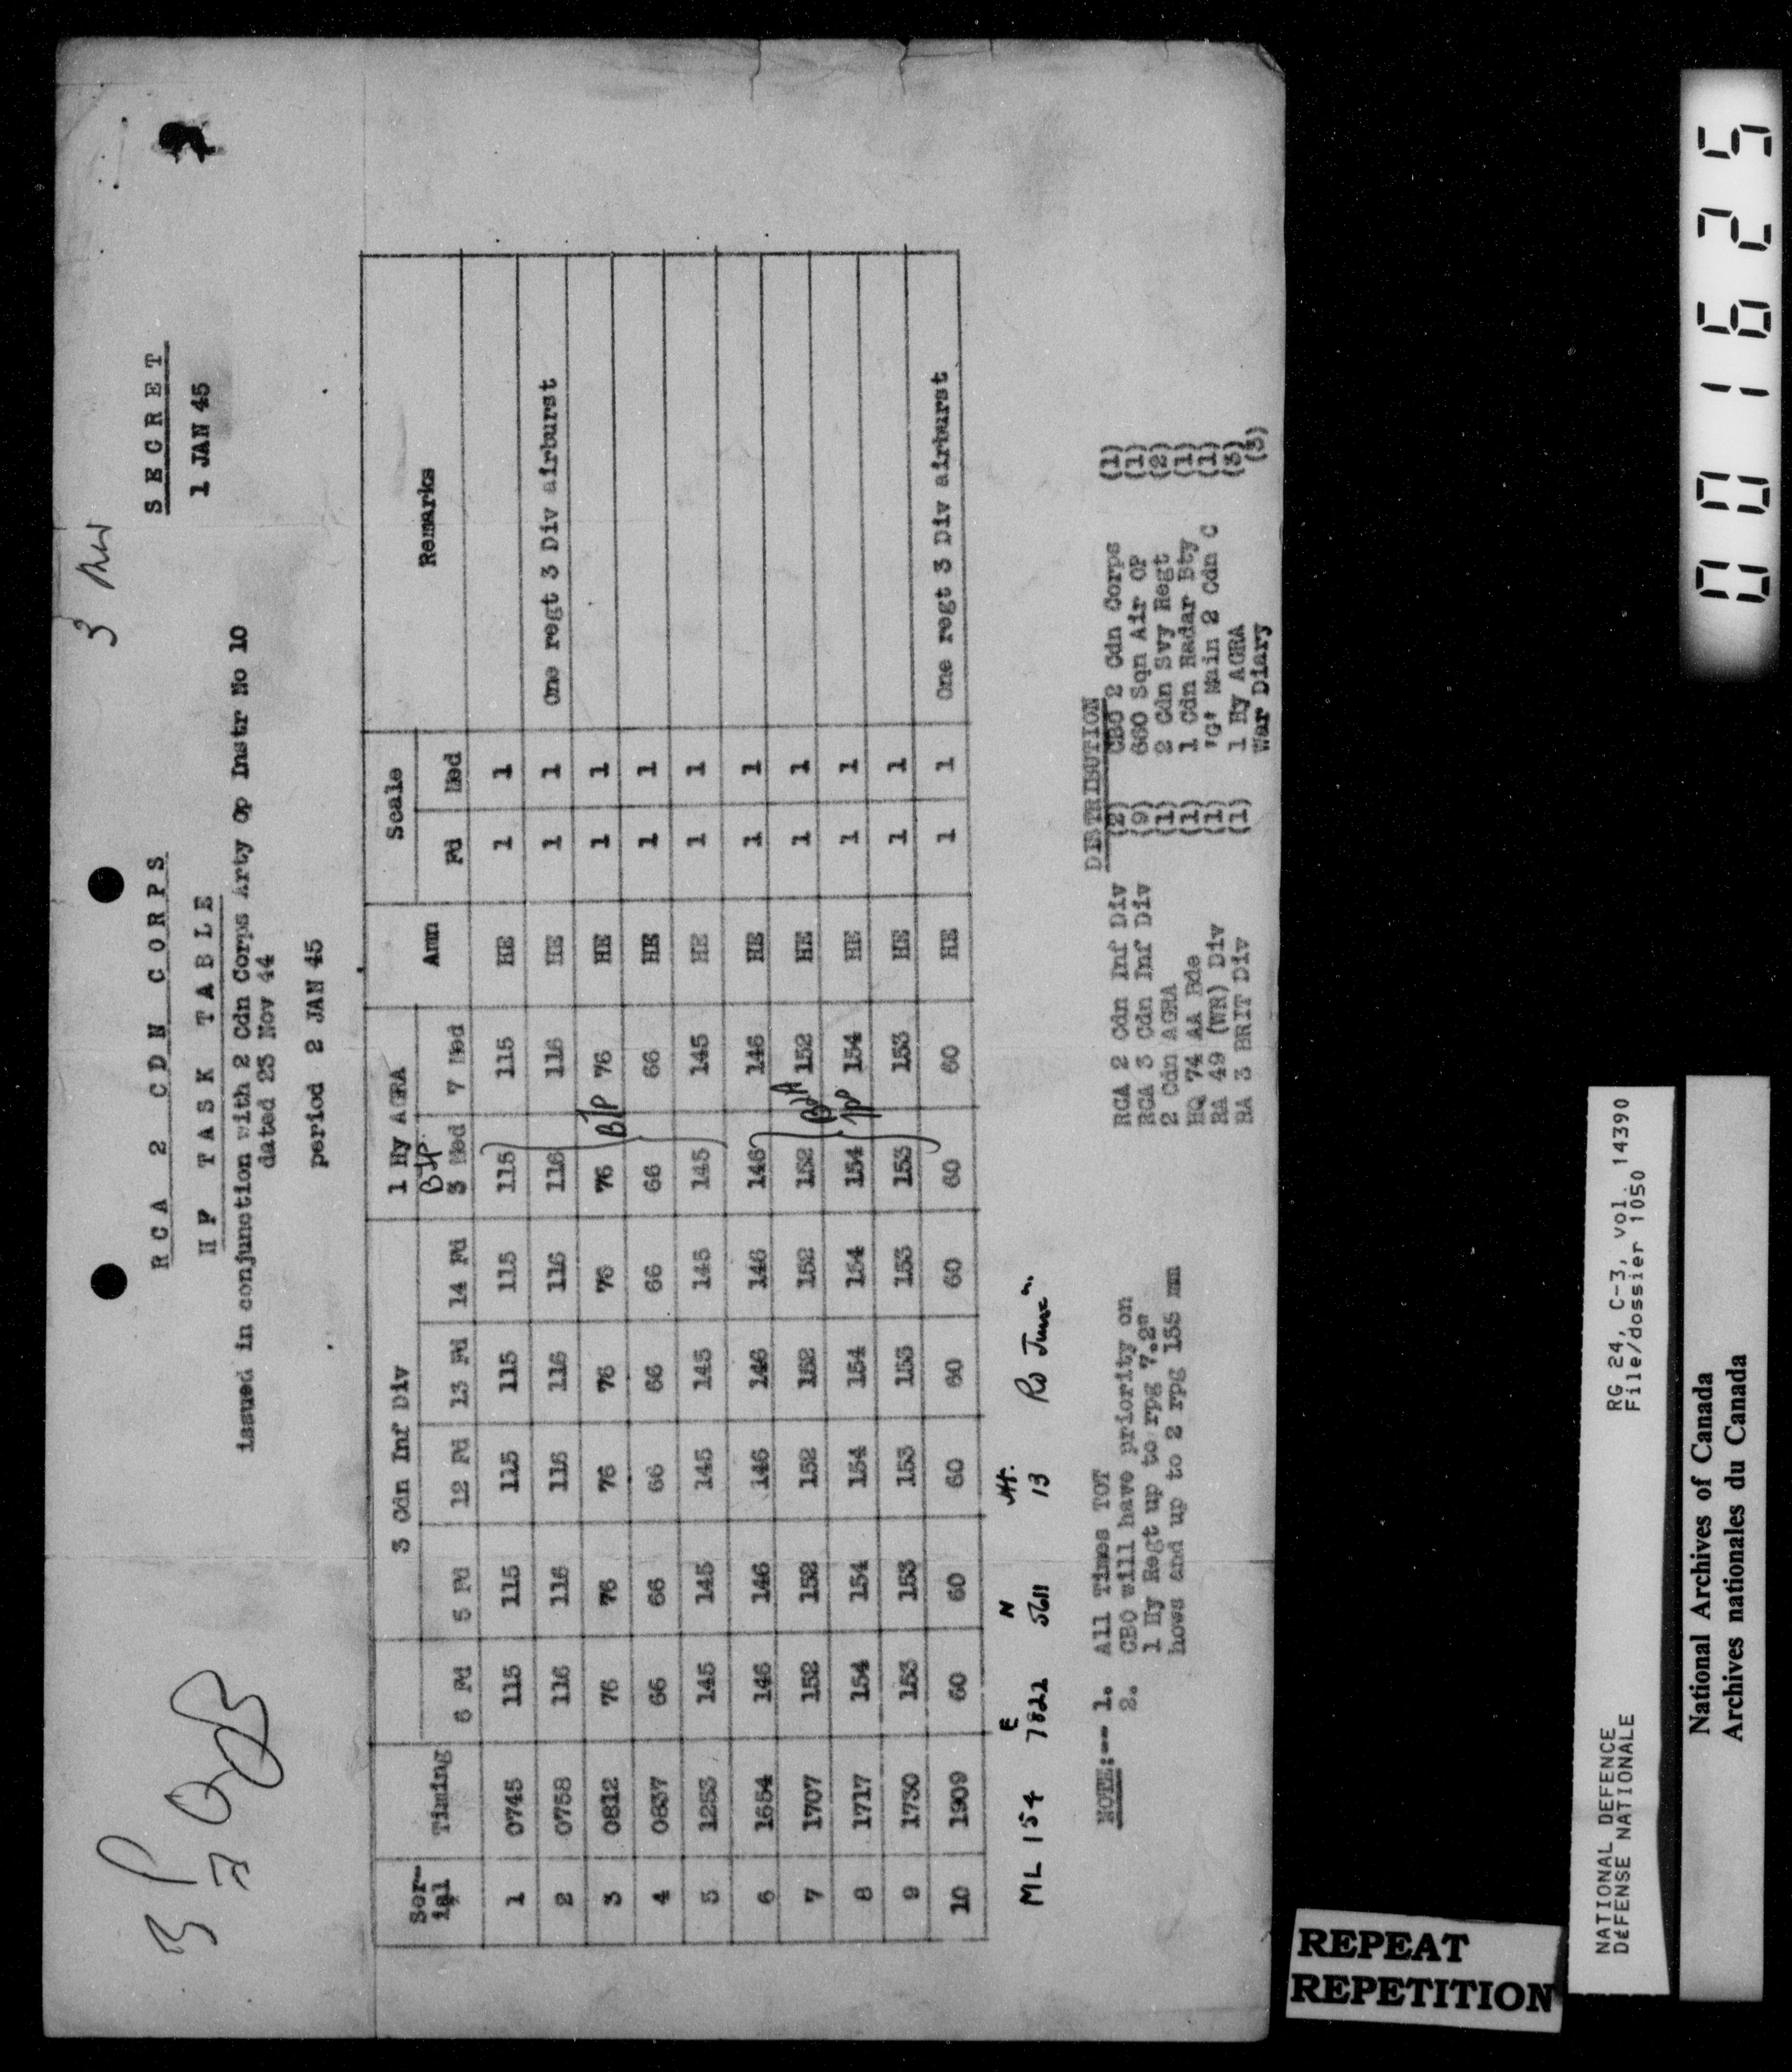 3
SECRET
1 JAN 45
RCA 2 CDN CORPS
HF TASK TABLE
issued in conjunction with 2 Cdn Corps Arty Op Instr No 10
dated 23 Nov 44
period 2 JAN 45
Ser- Timing 3 Cdn Inf Div 1 Hy AGRA Amn Scale Remarks
ial 6 Fd 5 Fd 12 Fd 13 Fd 14 Fd 3 Med 7 Med Fd Med
1 0745 115 115 115 115 115 115 115 HE 1 1
2 0758 116 116 116 116 116 116 116 HE 1 1 One regt 3 Div airburst
3 0812 76 76 76 76 76 76 76 HE 1 1
4 0837 66 66 66 66 66 66 66 HE 1 1
5 1253 145 145 145 145 145 145 145 HE 1 1
6 1654 146 146 146 146 146 146 146 HE 1 1
7 1707 152 152 152 152 152 152 152 HE 1 1
8 1717 154 154 154 154 154 154 154 HE 1 1
9 1730 153 153 153 153 153 153 153 HE 1 1
10 1909 60 60 60 60 60 60 60 HE 1 1 One regt 3 Div airburst
E N Ht.
ML 154 7822 5611 13
NOTE:-- 1. All Times TOT
2. CBO will have priority on
1 Hy Regt up to rpg 7.2"
hows and up to 2 rpg 155 mm
DISTRIBUTION
RCA 2 Cdn Inf Div (2) CBO 2 Cdn Corps (1)
RCA 3 Cdn Inf Div (9) 660 Sqn Air OP (1)
2 Cdn AGRA (1) 2 Cdn Svy Regt (2)
HQ 74 AA Bde (1) 1 Cdn Radar Bty (1)
RA 49 (WR) Div (1) 'G' Main 2 Cdn C (1)
RA 3 BRIT Div (1) 1 Hy AGRA (3)
War Diary (3)
REPEAT
REPETITION
NATIONAL DEFENCE RG 24, C-3, vol. 14390
DÉFENSE NATIONALE File/dossier 1050
National Archives of Canada
Archives nationales du Canada
001625